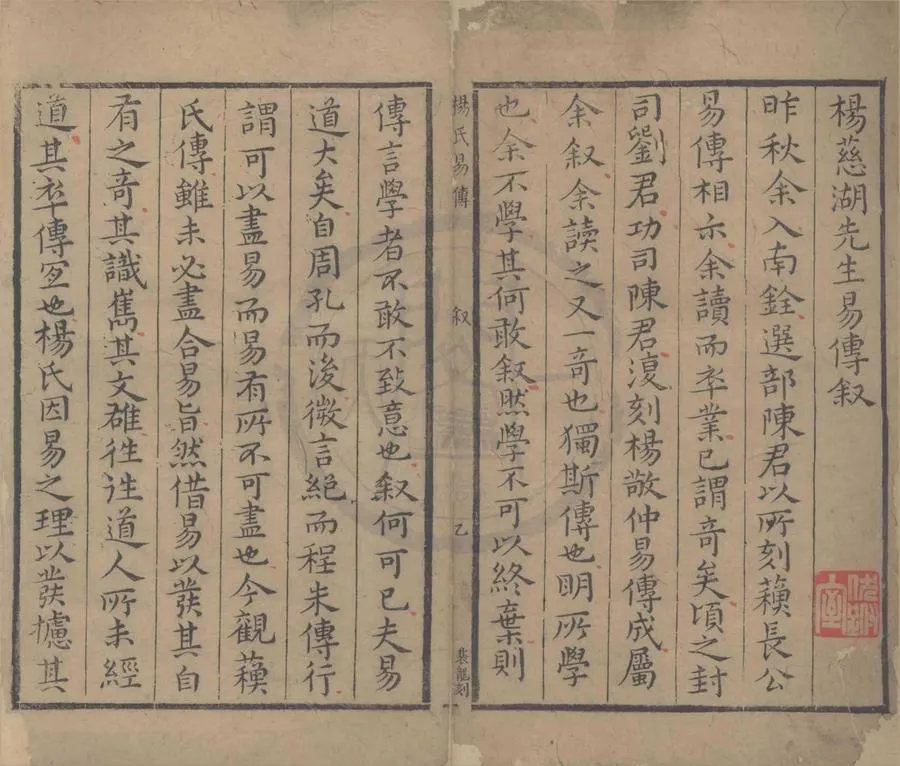 楊慈湖先生易傳叙
昨秋余入南銓選部陳君以所刻蘓長公
易傳相示余讀而卒業已謂竒矣頃之封
司劉君功司陳君復刻楊敬仲易傳成屬
余叙余讀之又一竒也獨斯傳也明所學
也余不學其何敢叙然學不可以終棄則
楊氏易傳
叙
乙
裴龍刻
傳言學者不敢不致意也叙何可已夫易
道大矣自周孔而後微言絕而程朱傳行
謂可以盡易而易有所不可盡也今觀蘓
氏傳雖未必盡合易旨然借易以發其自
有之竒其識雋其文雄徃徃道人所未經
道其卒傳宜也楊氏因易之理以發攄其